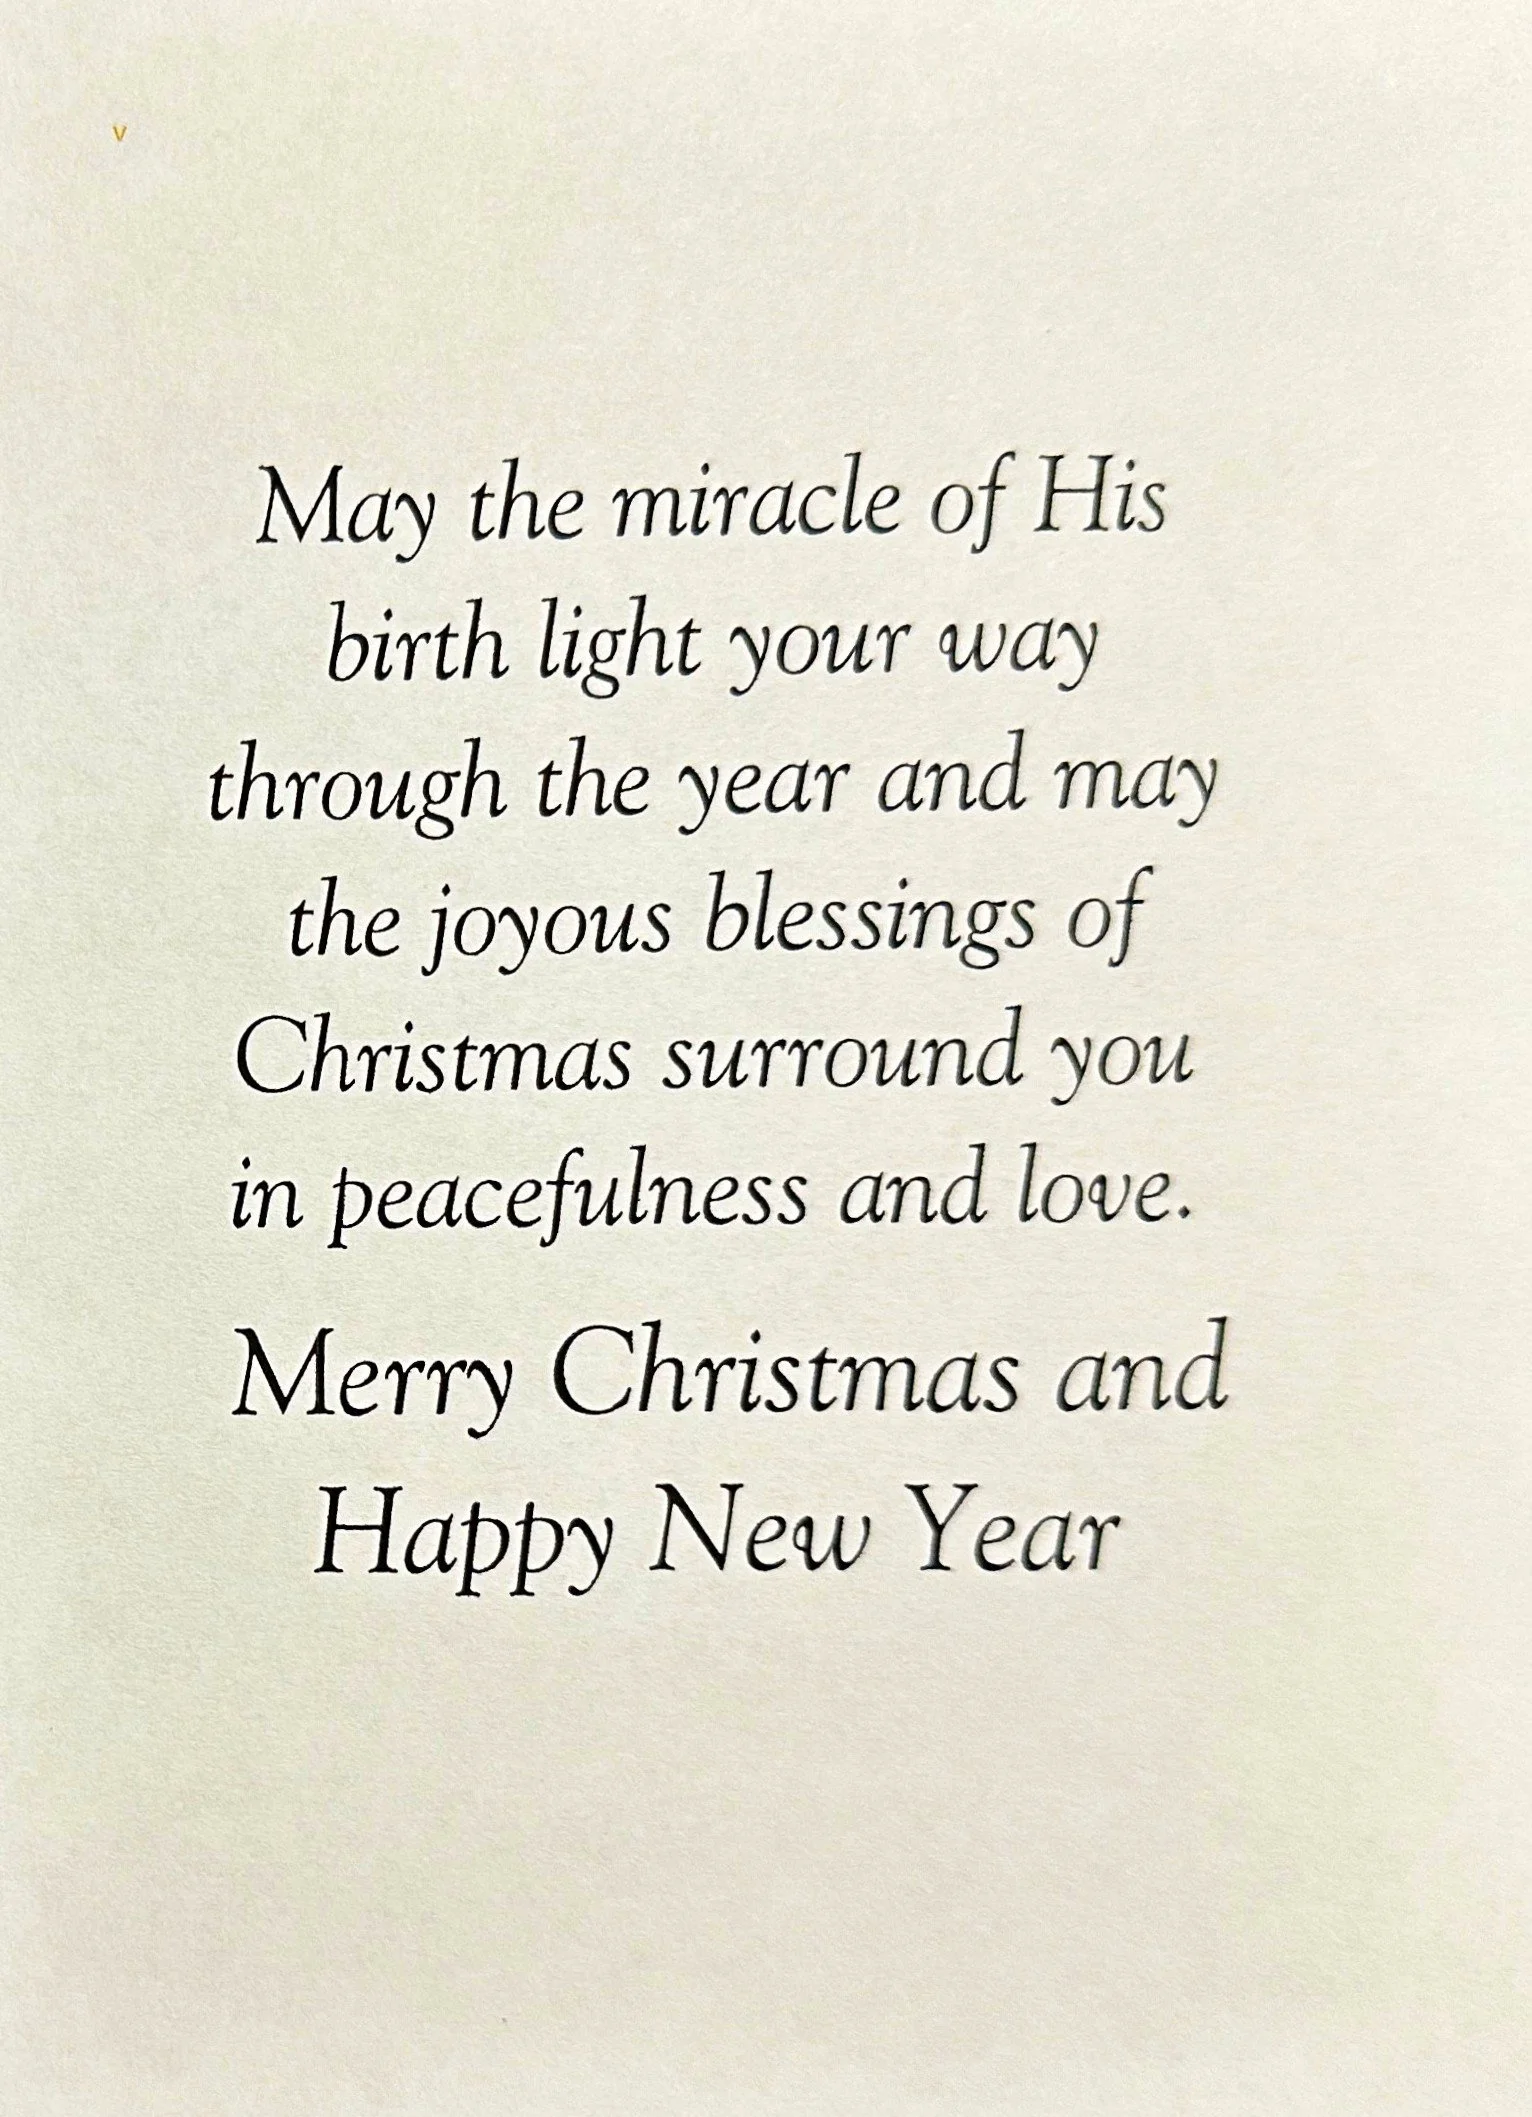 v
May the miracle of His
birth light your way
through the year and may
the joyous blessings of
Christmas surround you
in peacefulness and love.
Merry Christmas and
Happy New Year